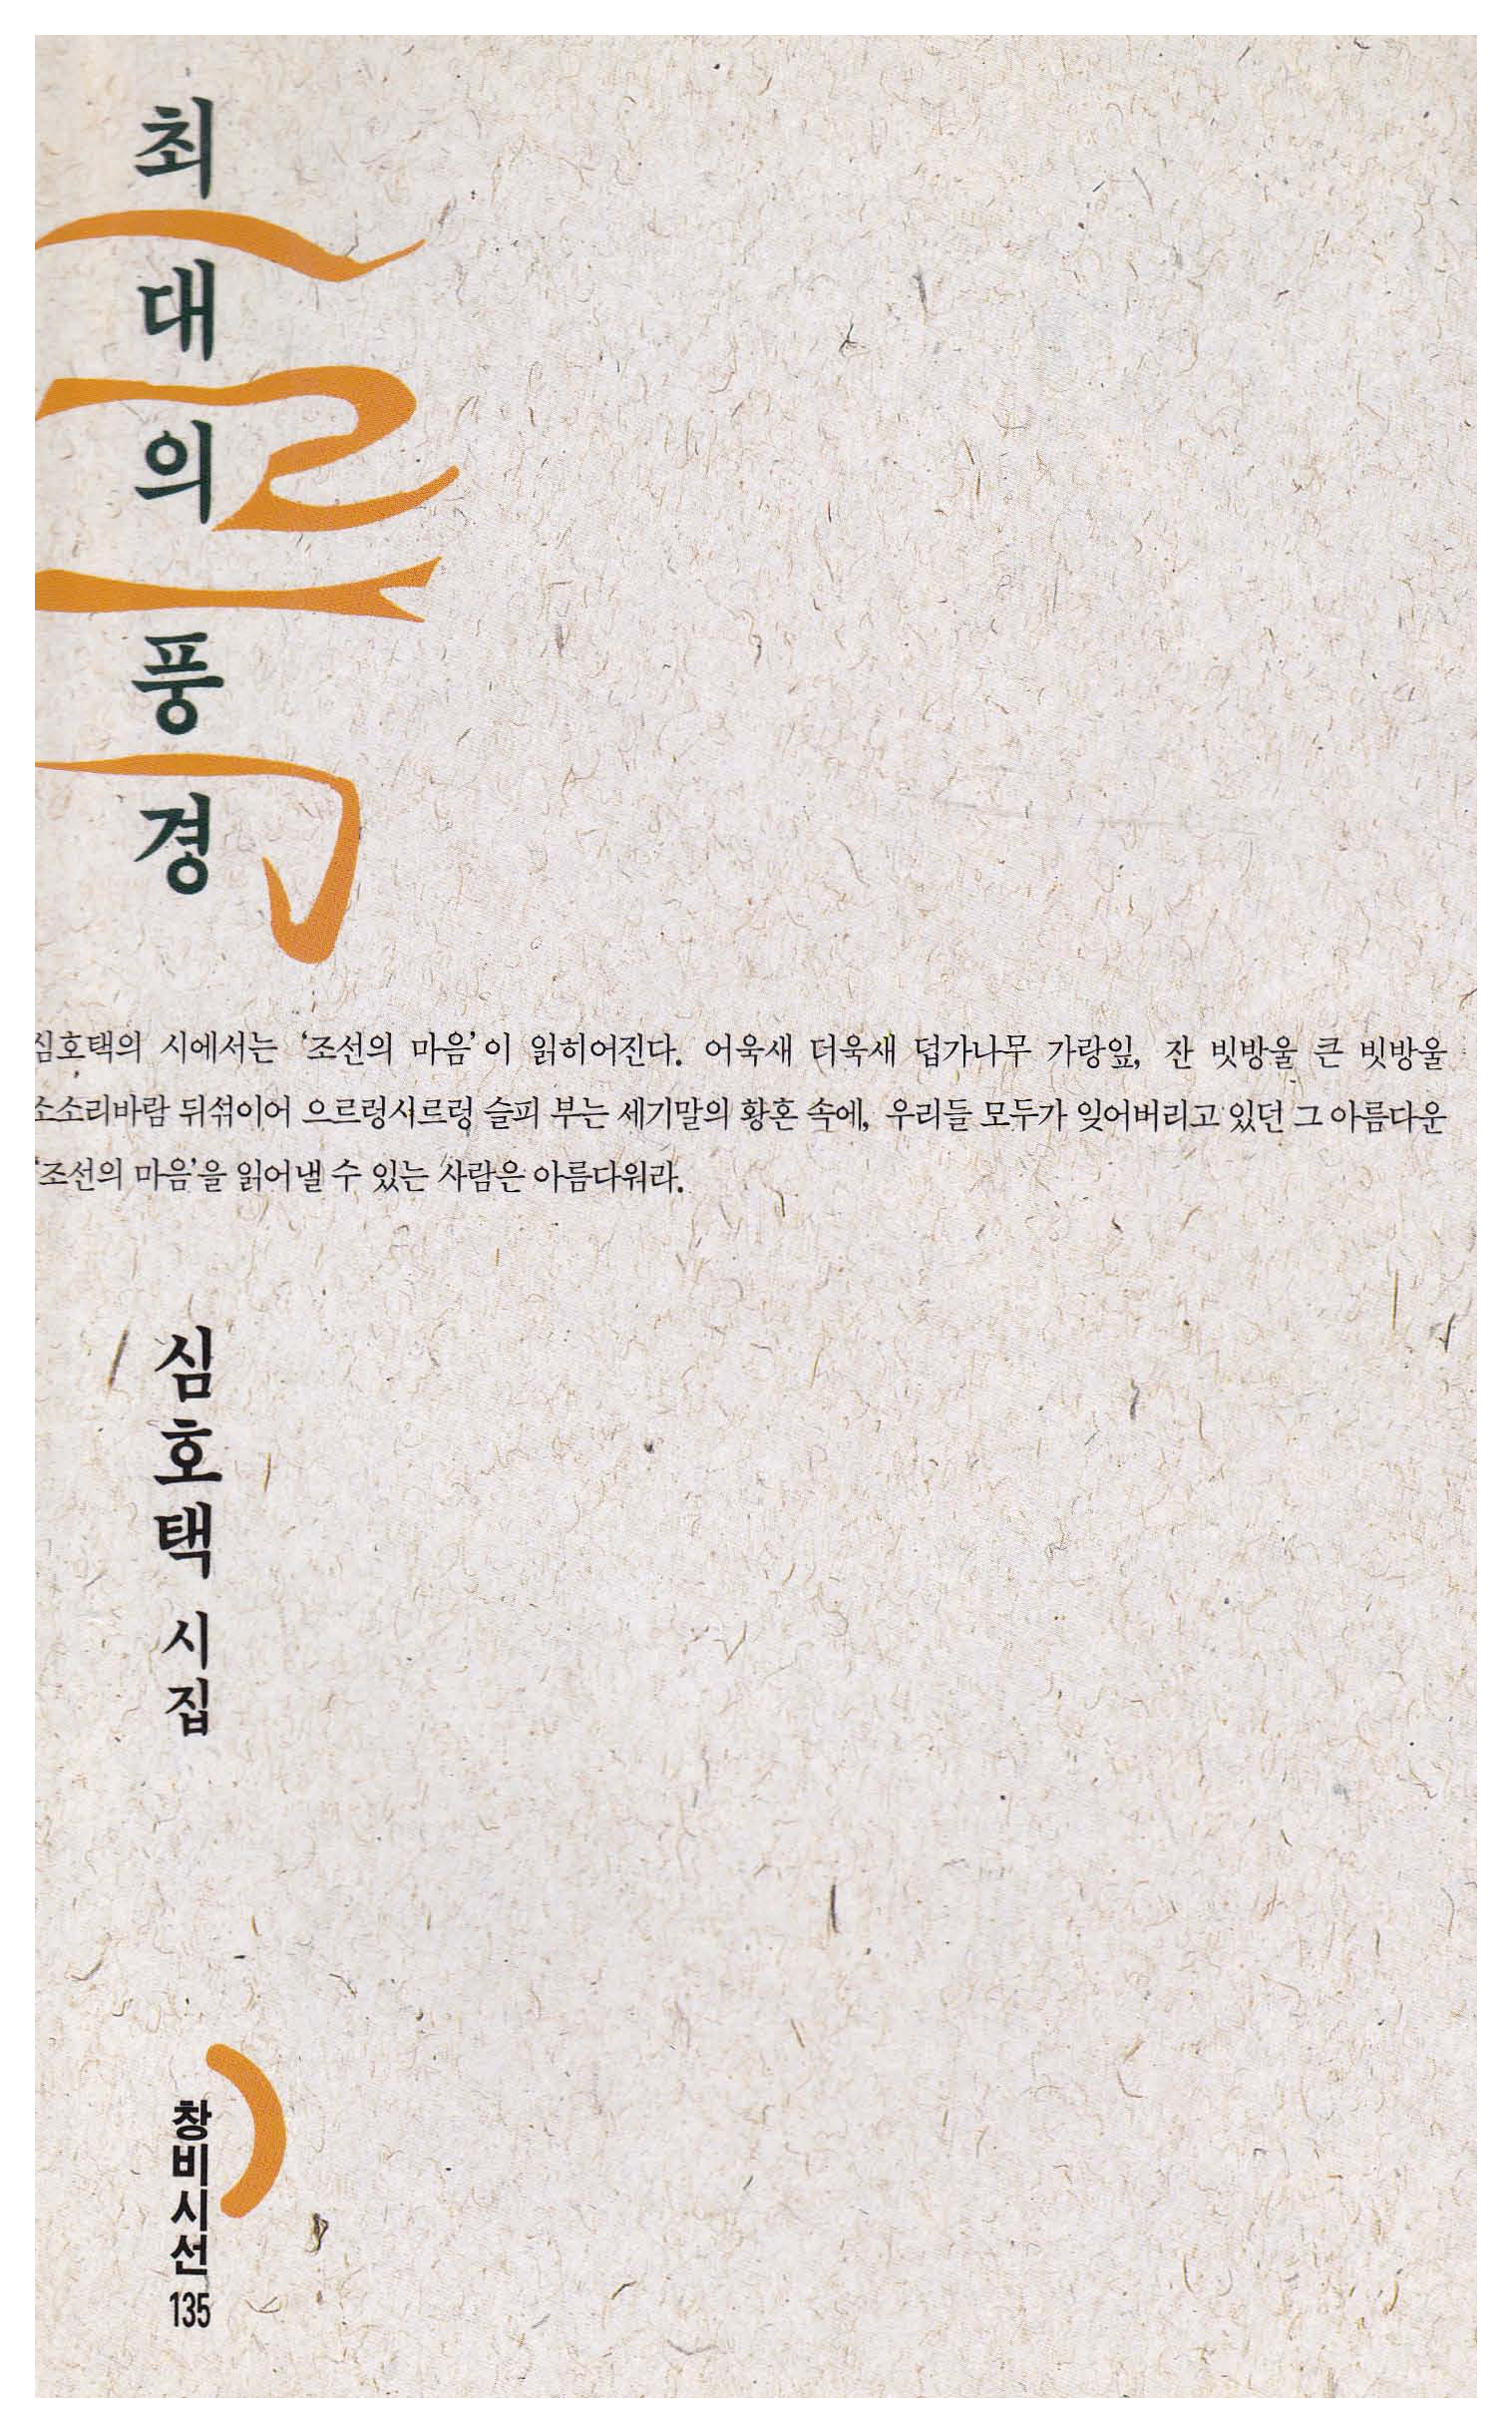 최대의풍경
심호택의 시에서는 ‘조선의 마음’이 읽히어진다. 어욱새 더욱새 덥가나무 가랑잎, 잔 빗방울 큰 빗방울
소소리바람 뒤섞이어 으르렁서르렁 슬피 부는 세기말의 황혼 속에, 우리들 모두가 잊어버리고 있던 그 아름다운
‘조선의 마음’을 읽어낼 수 있는 사람은 아름다워라.
심호택 시집
창비시선
135